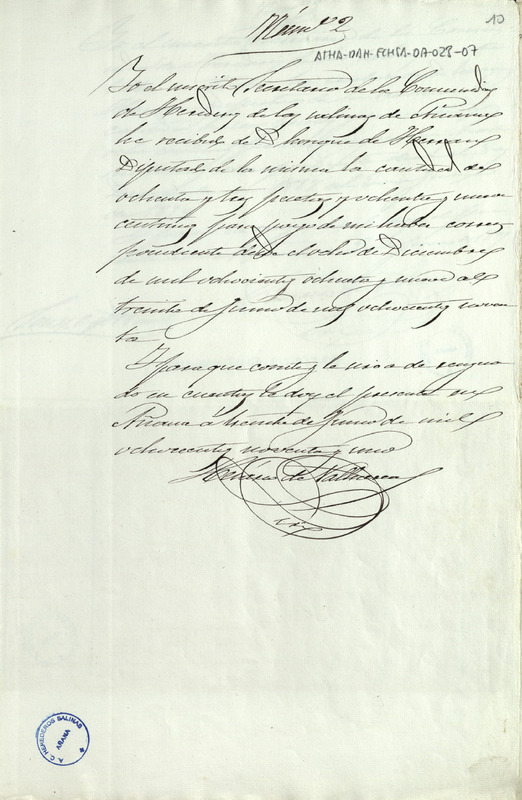 Núm.º 2
10
ATHA-DAH-FCHSA-DA-028-07
Yo el infrito Secretario de la Comunidad
de Herederos de las salinas de Añana
he recibido de D. Enrique de Herran
Diputado de la misma la cantidad de
ochenta y tres pesetas y ochenta y nueve
centimos para pago de mi haber corres-
pondiente desde el ocho de Diciembre
de mil ochocientos ochenta y nueve al
treinta de Junio de mil ochocientos noven-
ta
Y para que conste y le sirva de resguar-
do en cuentas le doy el presente en
Añana á treinta de Junio de mil
ochocientos noventa y uno
de
A. C. HEREDEROS SALINAS
AÑANA